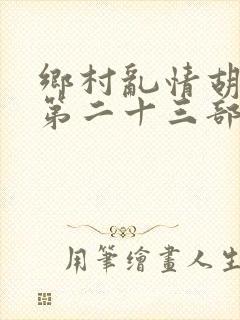 鄉村亂情胡
第二十三部
用筆繪畫人生